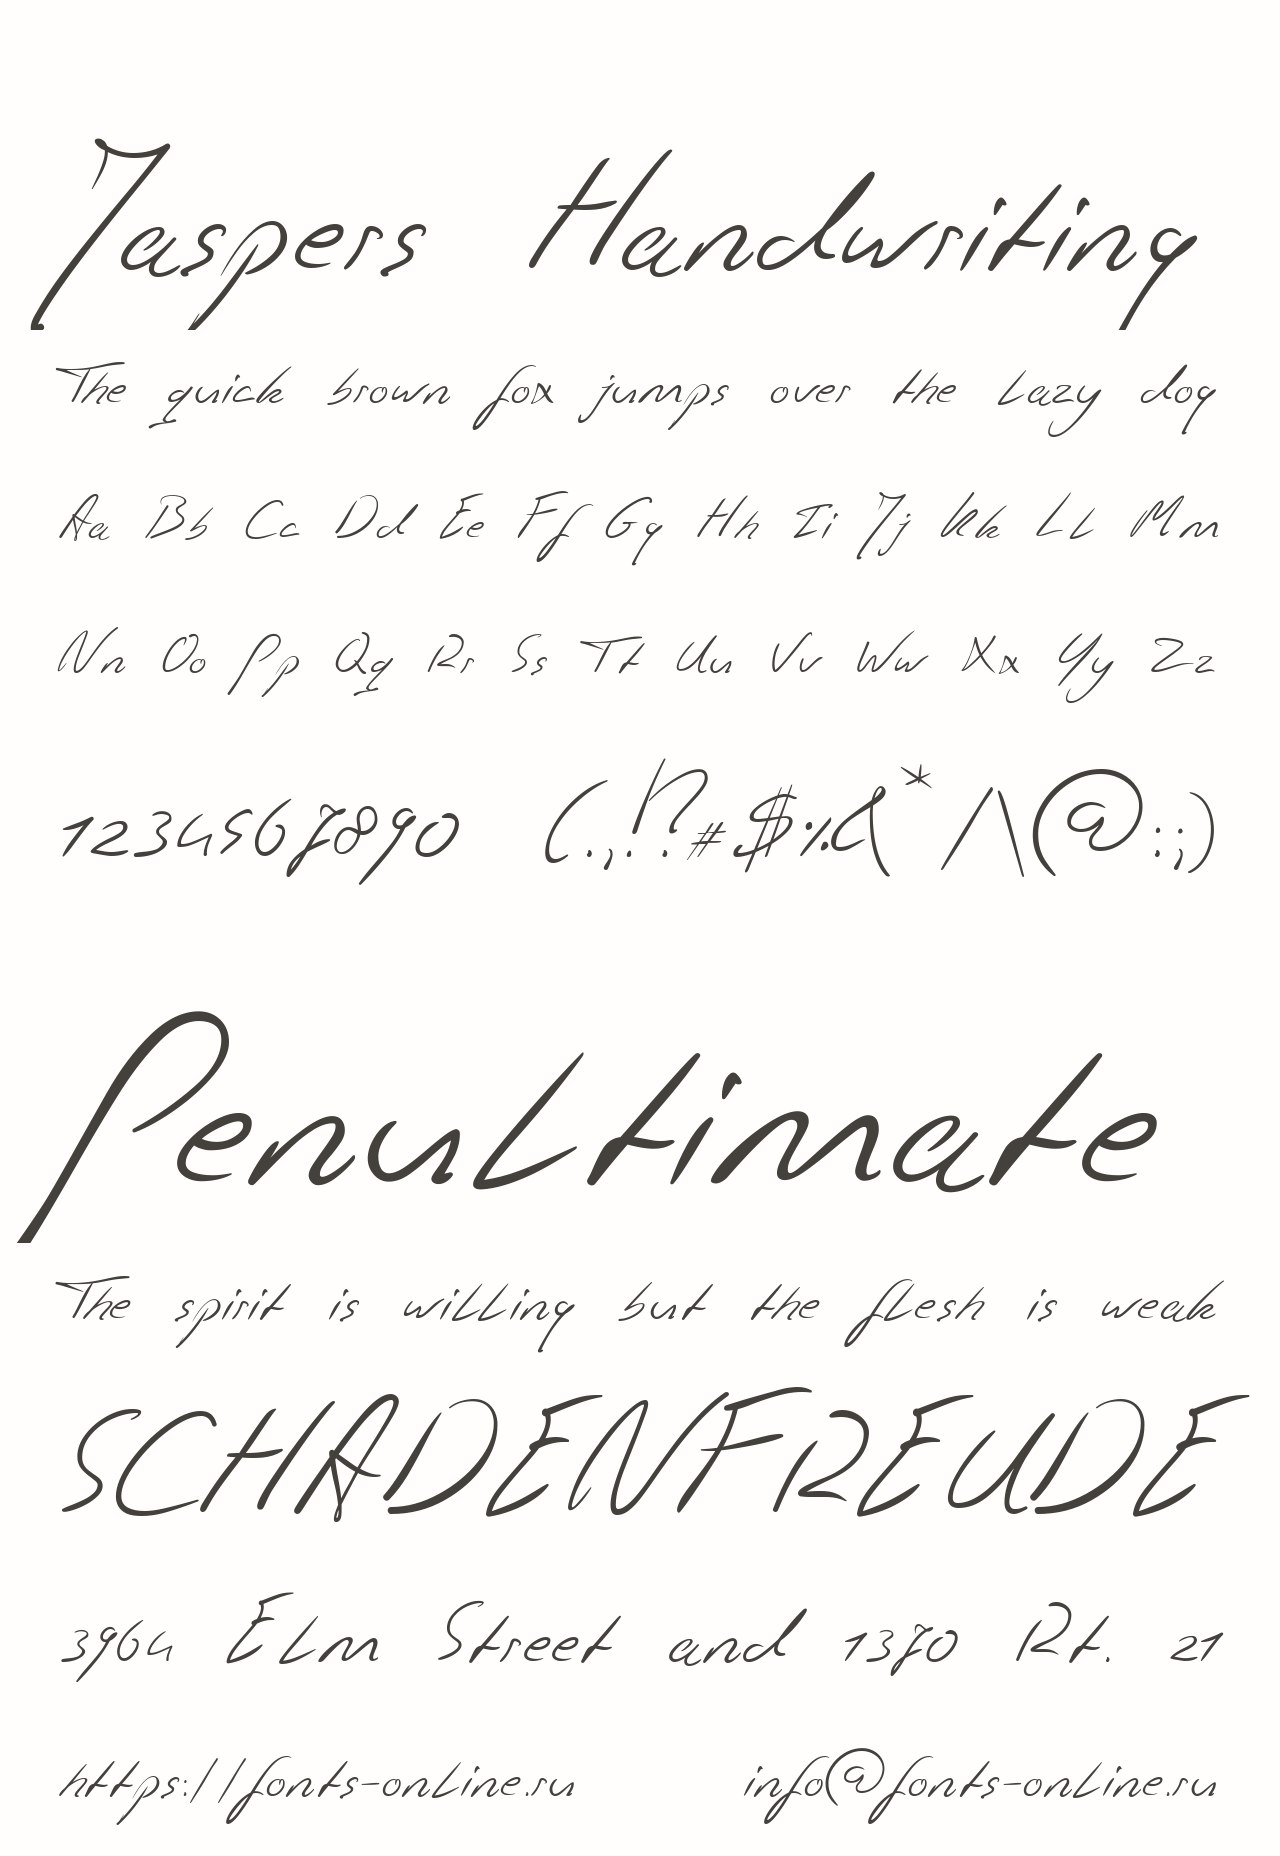 Jaspers Handwriting
The quick brown fox jumps over the lazy dog
Aa Bb Cc Dd Ee Ff Gg Hh Ii Jj Kk Ll Mm
Nn Oo Pp Qq Rr Ss Tt Uu Vv Ww Xx Yy Zz
1234567890 (.,!?#$%&*/\@:;)
Penultimate
The spirit is willing but the flesh is weak
SCHADENFREUDE
3964 Elm Street and 1370 Rt. 21
https://fonts-online.ru info@fonts-online.ru